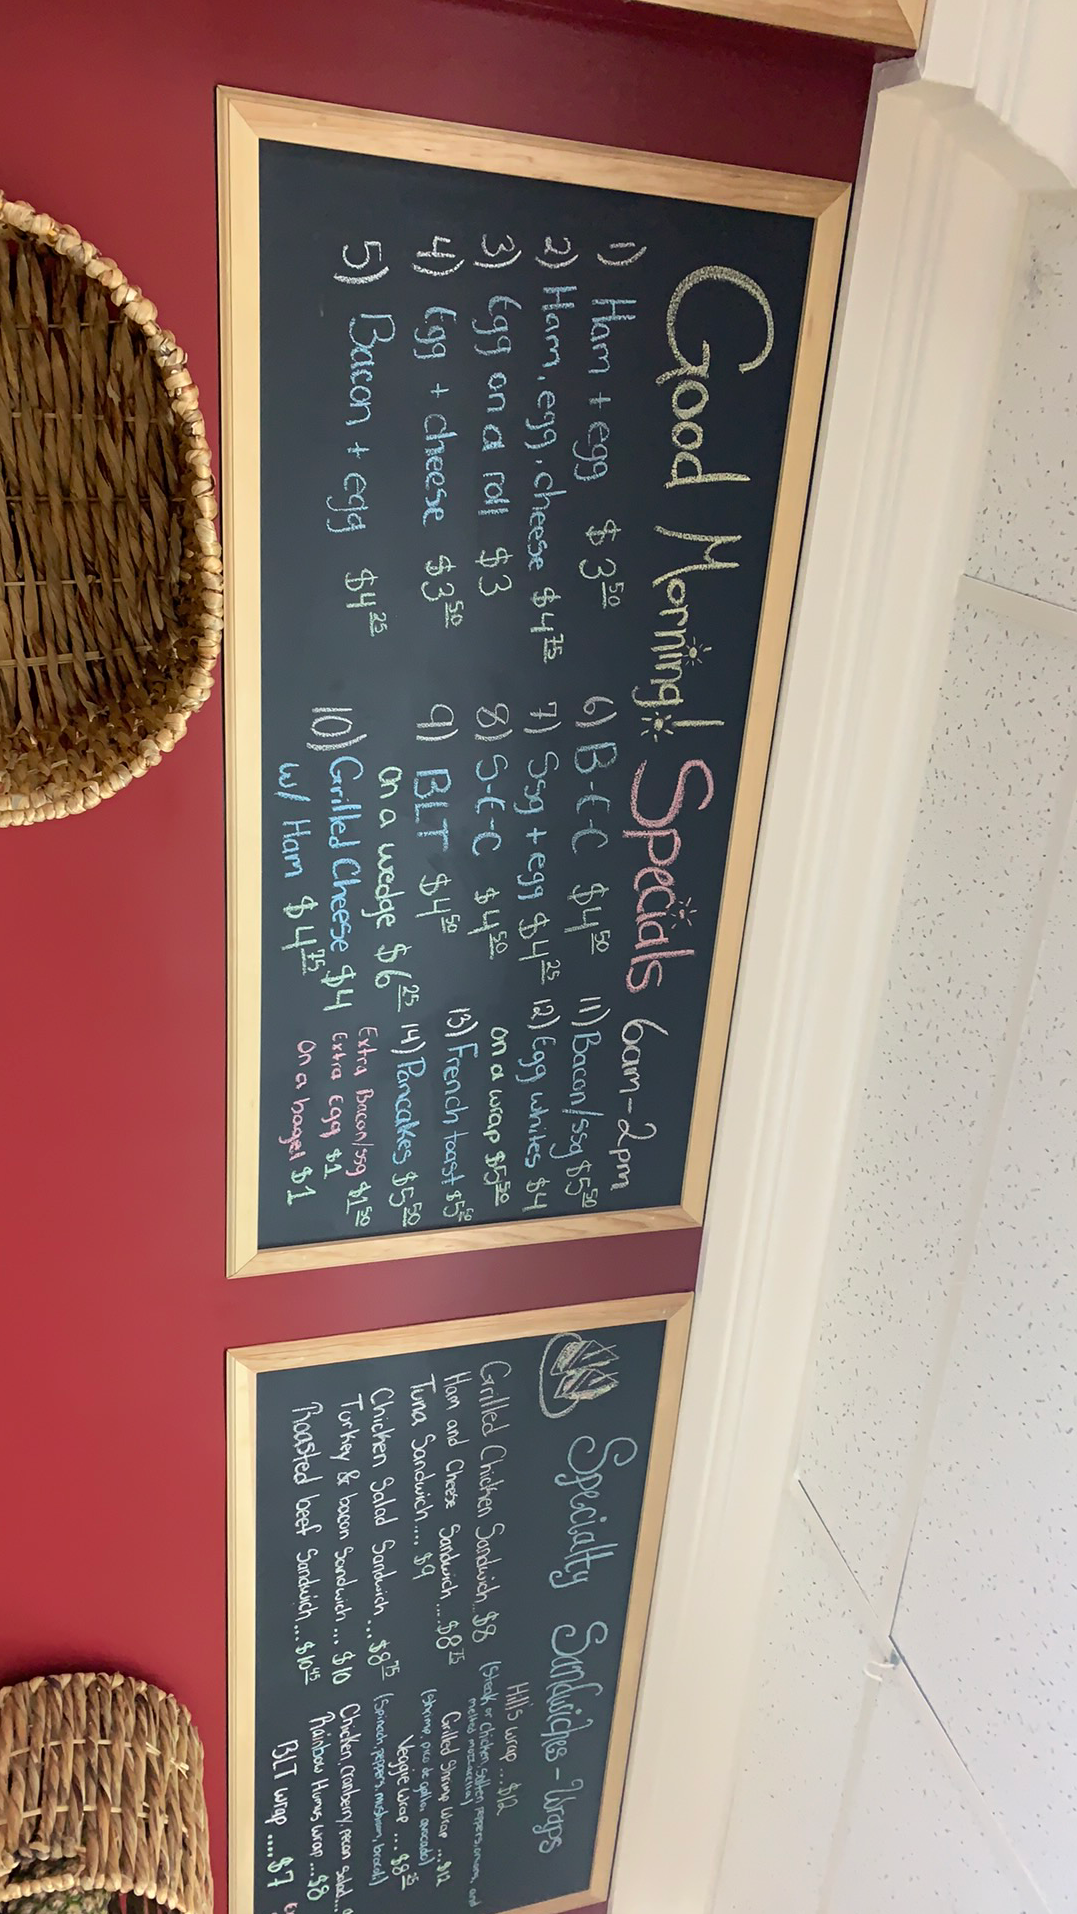 Good Morning! Specials 6am-2pm
1) Ham + egg $3.50
2) Ham, egg, cheese $4.75
3) Egg on a roll $3
4) Egg + cheese $3.50
5) Bacon + egg $4.25
6) B-E-C $4.50
7) Ssg + egg $4.25
8) S-E-C $4.50
9) BLT $4.50
on a wedge $6.25
10) Grilled Cheese $4
w/ Ham $4.75
11) Bacon/ssg $5.50
12) Egg whites $4
on a wrap $5.50
13) French toast $5.50
14) Pancakes $5.50
Extra Bacon/ssg $1.50
Extra Egg $1
On a bagel $1
Specialty Sandwiches - Wraps
Grilled Chicken Sandwich.. $8
Ham and Cheese Sandwich ....$8.75
Tuna Sandwich .... $9
Chicken Salad Sandwich ... $8.75
Turkey & bacon Sandwich ... $10
Roasted beef Sandwich ... $10.45
Hill's wrap ... $12
(Steak or chicken, peppers, onions, and
melted mozzarella)
Grilled Shrimp Wrap ... $12
(shrimp, pico de gallo, avocado)
Veggie wrap ...
(Spinach, peppers, mushroom, brocoli)
Chicken, cranberry, pecan salad...
Rainbow Humus wrap ... $8
BLT wrap .... $7